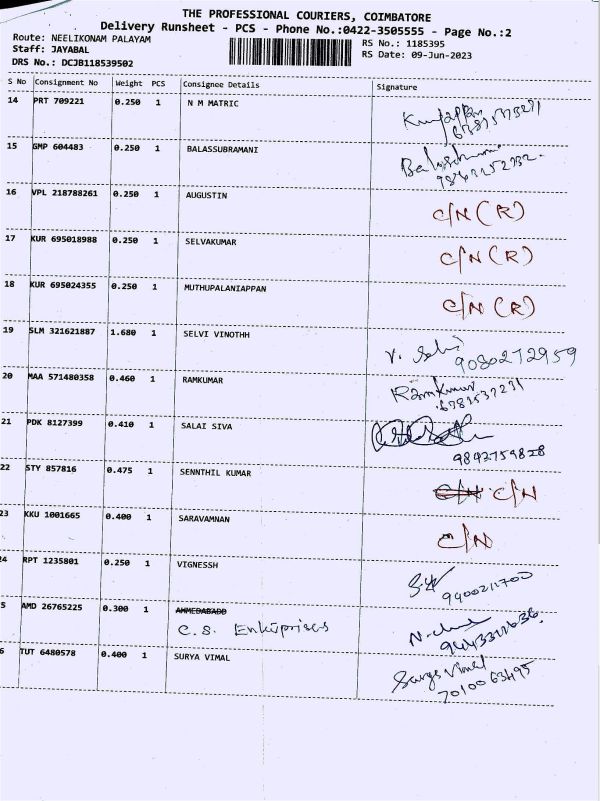 THE PROFESSIONAL COURIERS, COIMBATORE
Delivery Runsheet - PCS - Phone No.:0422-3505555 - Page No.:2
Route: NEELIKONAM PALAYAM
RS No.: 1185395
Staff: JAYABAL
RS Date: 09-Jun-2023
DRS No.: DCJB118539502
S No Consignment No Weight PCS Consignee Details Signature
14 PRT 709221 0.250 1 N M MATRIC
15 GMP 604483 0.250 1 BALASSUBRAMANI
16 VPL 218788261 0.250 1 AUGUSTIN C/N (R)
17 KUR 695018988 0.250 1 SELVAKUMAR C/N (R)
18 KUR 695024355 0.250 1 MUTHUPALANIAPPAN C/N (R)
19 SLM 321621887 1.680 1 SELVI VINOTHH V. Selvi
9080272959
20 MAA 571480358 0.460 1 RAMKUMAR Ramkumar
21 PDK 8127399 0.410 1 SALAI SIVA
9892759828
22 STY 857816 0.475 1 SENNTHIL KUMAR C/N C/N
23 KKU 1001665 0.400 1 SARAVAMNAN C/N
24 RPT 1235801 0.250 1 VIGNESSH
9400211700
5 AMD 26765225 0.300 1 AHMEDABADD
C.S. Enterprises
6 TUT 6480578 0.400 1 SURYA VIMAL Surya Vimal
70100 63495